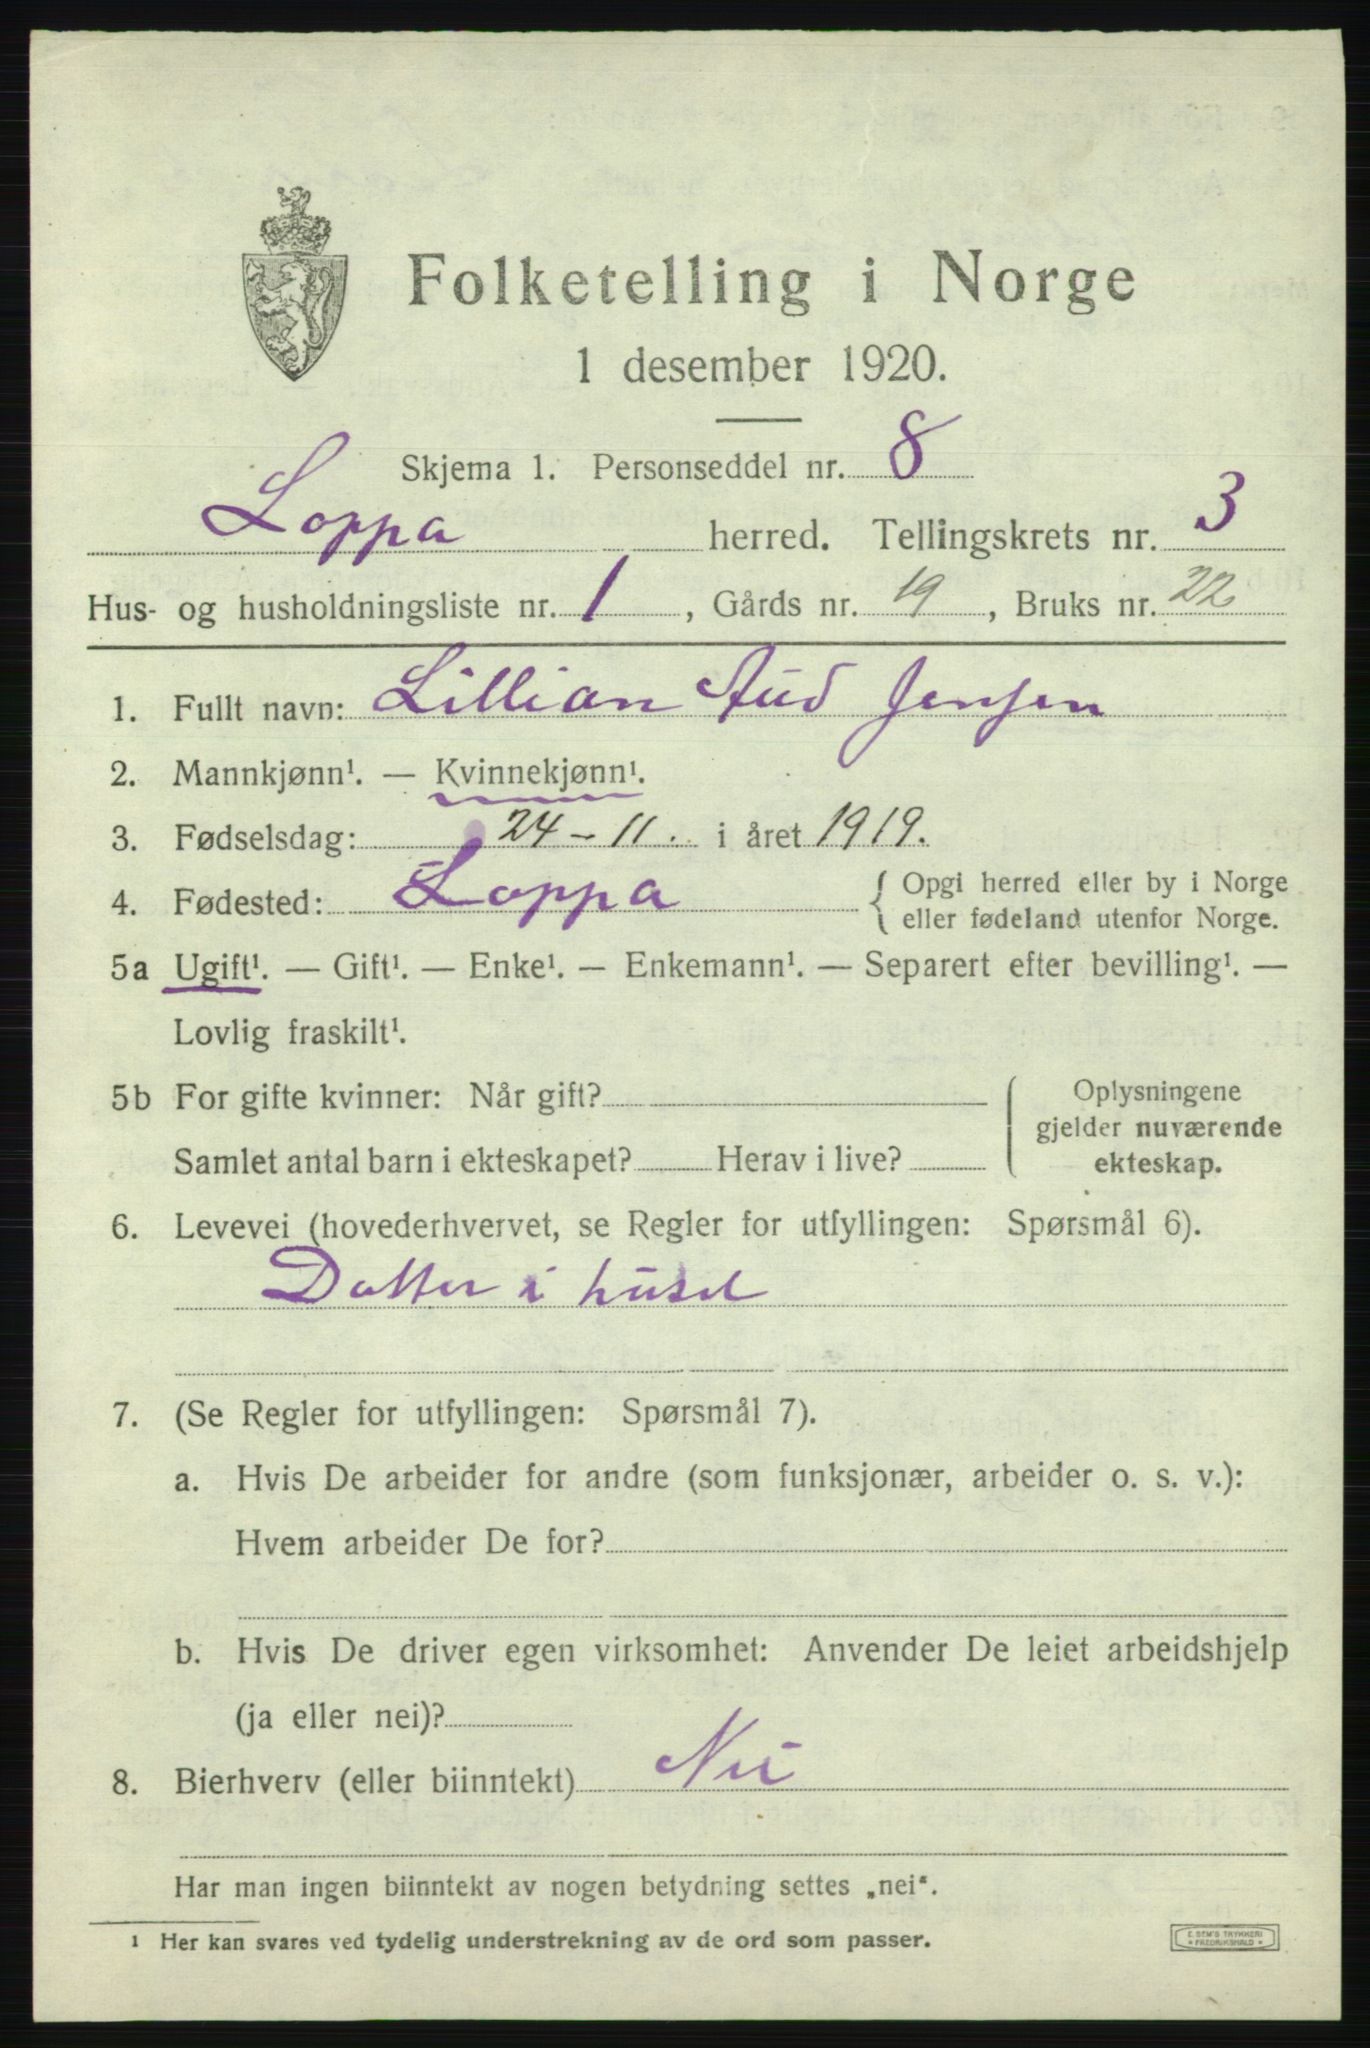 Folketelling i Norge
1 desember 1920.
Skjema 1. Personseddel nr. 8
Loppa herred. Tellingskrets nr. 3
Hus- og husholdningsliste nr. 1, Gårds nr. 19, Bruks nr. 22
1. Fullt navn: Lillian Aud Jensen
2. Mannkjønn¹. — Kvinnekjønn¹.
3. Fødselsdag: 24 - 11. i året 1919.
4. Fødested: Loppa { Opgi herred eller by i Norge
eller fødeland utenfor Norge.
5a Ugift¹. — Gift¹. — Enke¹. — Enkemann¹. — Separert efter bevilling¹. —
Lovlig fraskilt¹.
5b For gifte kvinner: Når gift?
Samlet antal barn i ekteskapet? Herav i live?
Oplysningene
gjelder nuværende
ekteskap.
6. Levevei (hovederhvervet, se Regler for utfyllingen: Spørsmål 6).
Datter i huset
7. (Se Regler for utfyllingen: Spørsmål 7).
a. Hvis De arbeider for andre (som funksjonær, arbeider o. s. v.):
Hvem arbeider De for?
b. Hvis De driver egen virksomhet: Anvender De leiet arbeidshjelp
(ja eller nei)?
8. Bierhverv (eller biinntekt) Nei
Har man ingen biinntekt av nogen betydning settes „nei“.
¹ Her kan svares ved tydelig understrekning av de ord som passer.
E. SEM'S TRYKKERI
* FREDRIKSHALD *